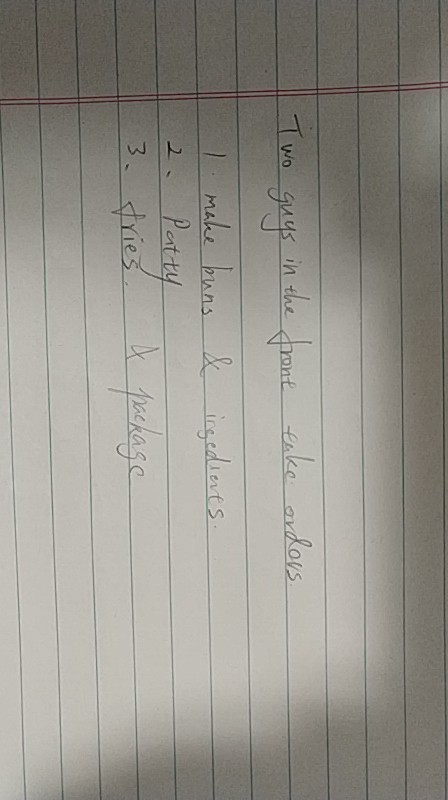 Two guys in the front take orders.
1. make buns & ingredients.
2. Patty
3. fries. & package